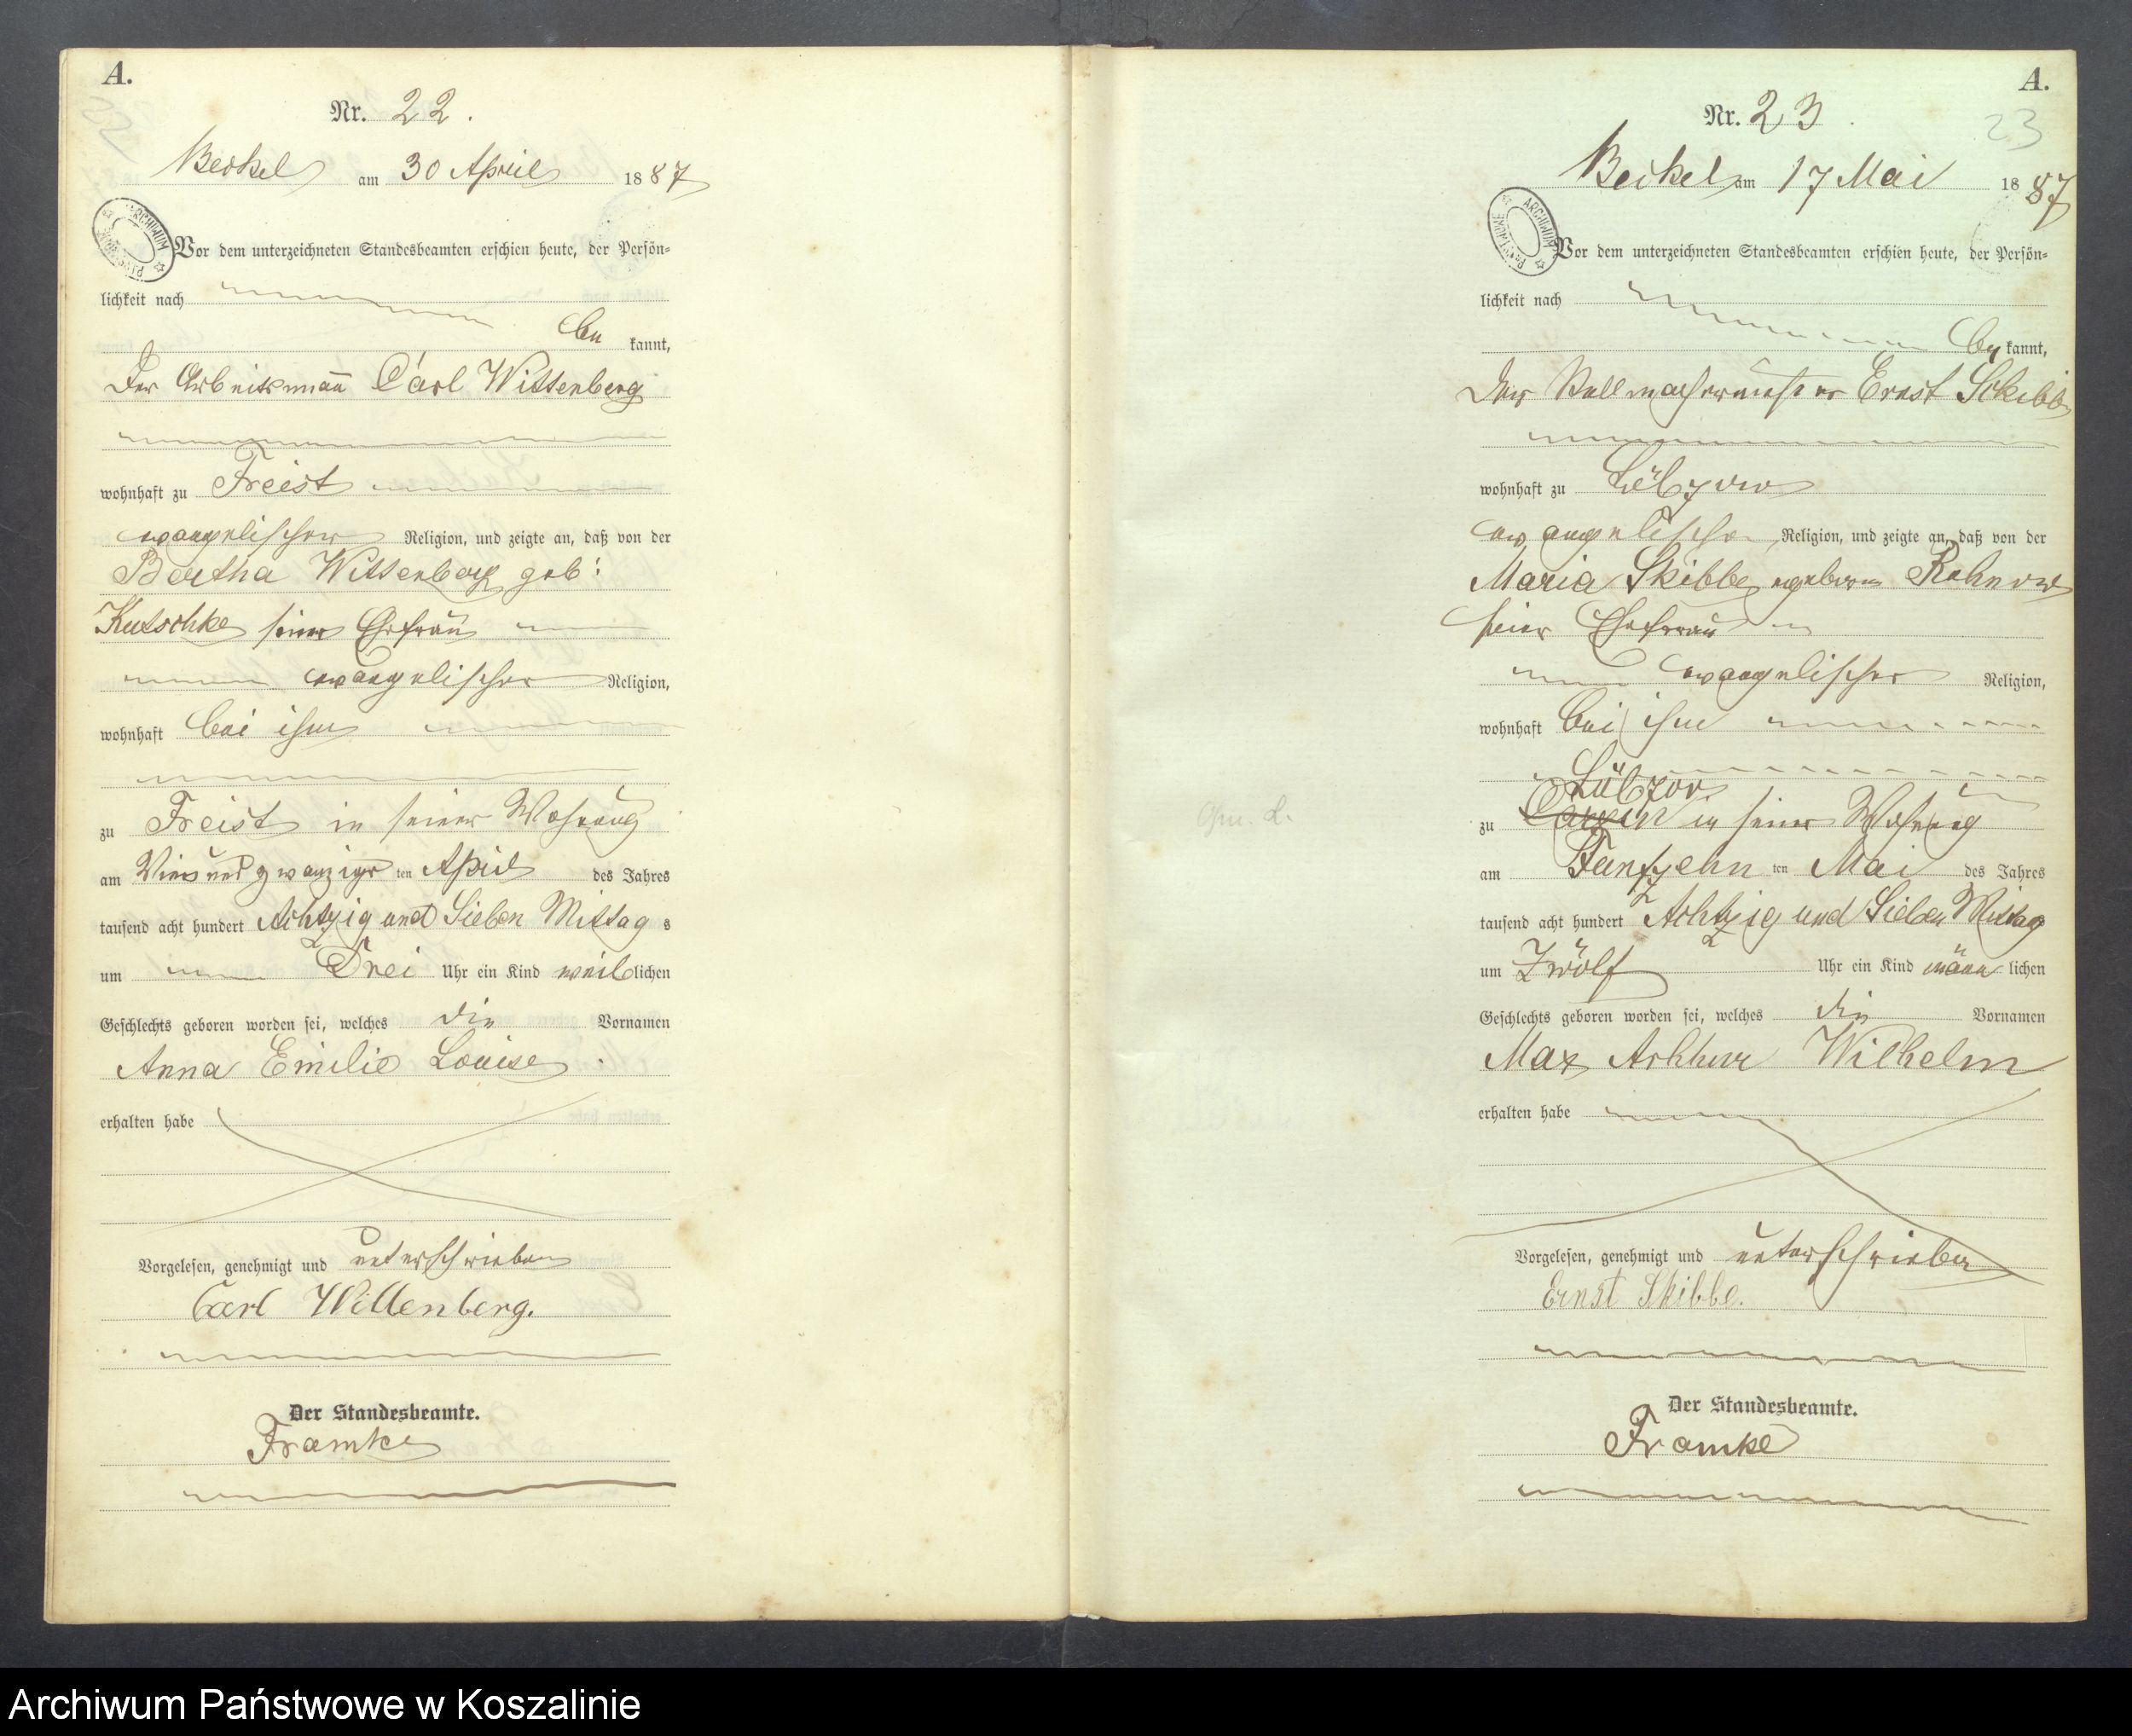 A.
Nr. 22.
Beckel am 30 April 1887
Vor dem unterzeichneten Standesbeamten erschien heute, der Persön-
lichkeit nach
be kannt,
Der Arbeitsmann Carl Wittenberg
wohnhaft zu Freist
evangelischer Religion, und zeigte an, daß von der
Bertha Wittenberg geb:
Kutschke seiner Ehefrau
evangelischer Religion,
wohnhaft bei ihm
zu Freist in seiner Wohnung
am Vierundzwanzigs ten April des Jahres
tausend acht hundert Achtzig und Sieben Mittag s
um Drei Uhr ein Kind weiblichen
Geschlechts geboren worden sei, welches die Vornamen
Anna Emilie Louise.
erhalten habe
Vorgelesen, genehmigt und unterschrieben
Carl Wittenberg.
Der Standesbeamte.
Framke
A.
Nr. 23.
23
Beckel am 17 Mai 1887
Vor dem unterzeichneten Standesbeamten erschien heute, der Persön-
lichkeit nach
be kannt,
Der Stellmachermeister Ernst Skibbe
wohnhaft zu Lübzow
evangelischer Religion, und zeigte an, daß von der
Maria Skibbe geboren
seiner Ehefrau
evangelischer Religion,
wohnhaft bei ihm
Lübzow
zu in seiner Wohnung
am Funfzehn ten Mai des Jahres
tausend acht hundert Achtzig und Sieben Mittag
um Zwölf Uhr ein Kind männ lichen
Geschlechts geboren worden sei, welches die Vornamen
Max Arthur Wilhelm
erhalten habe
Vorgelesen, genehmigt und unterschrieben
Ernst Skibbe.
Der Standesbeamte.
Framke
Archiwum Państwowe w Koszalinie